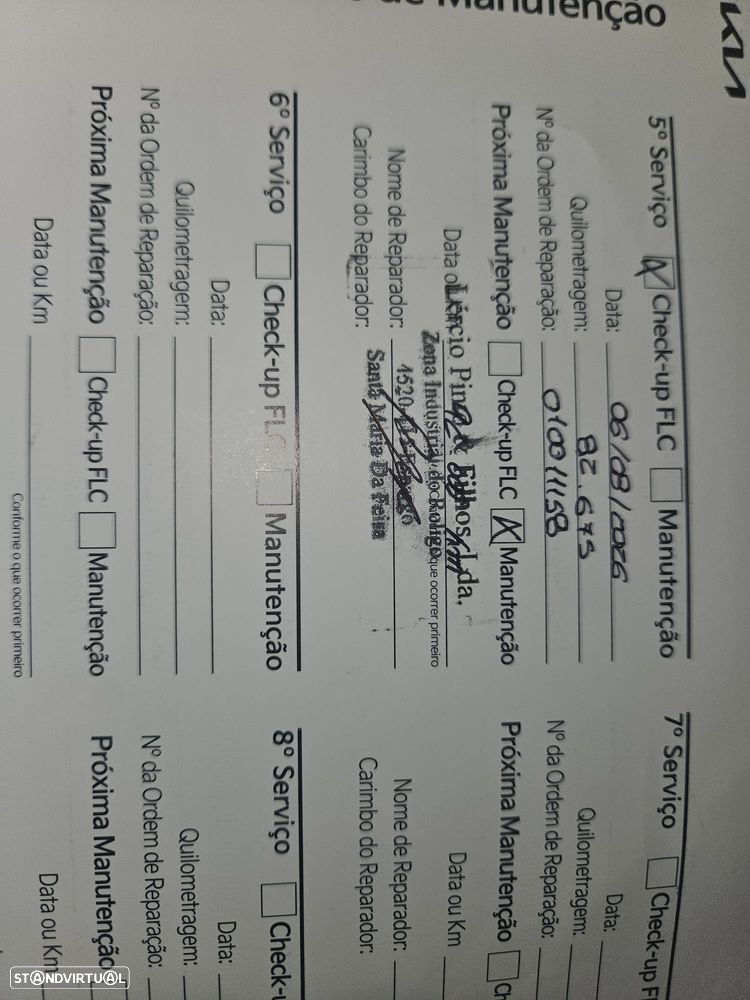 KIA
Manutenção
5º Serviço Check-up FLC Manutenção
Data: 06/08/2026
Quilometragem: 82.675
Nº da Ordem de Reparação: 010011158
Próxima Manutenção Check-up FLC Manutenção
Data o
que ocorrer primeiro
Nome de Reparador:
Carimbo do Reparador:
Lércio Pin & Filhos, Lda.
Zona Industrial do Roligo
4520
Santa Maria Da Feira
6º Serviço Check-up FLC Manutenção
Data:
Quilometragem:
Nº da Ordem de Reparação:
Próxima Manutenção Check-up FLC Manutenção
Data ou Km
Conforme o que ocorrer primeiro
7º Serviço Check-up F
Data:
Quilometragem:
Nº da Ordem de Reparação:
Próxima Manutenção Ch
Data ou Km
Nome de Reparador:
Carimbo do Reparador:
8º Serviço Check-u
Data:
Quilometragem:
Nº da Ordem de Reparação:
Próxima Manutenção
Data ou Km
STANDVIRTUAL